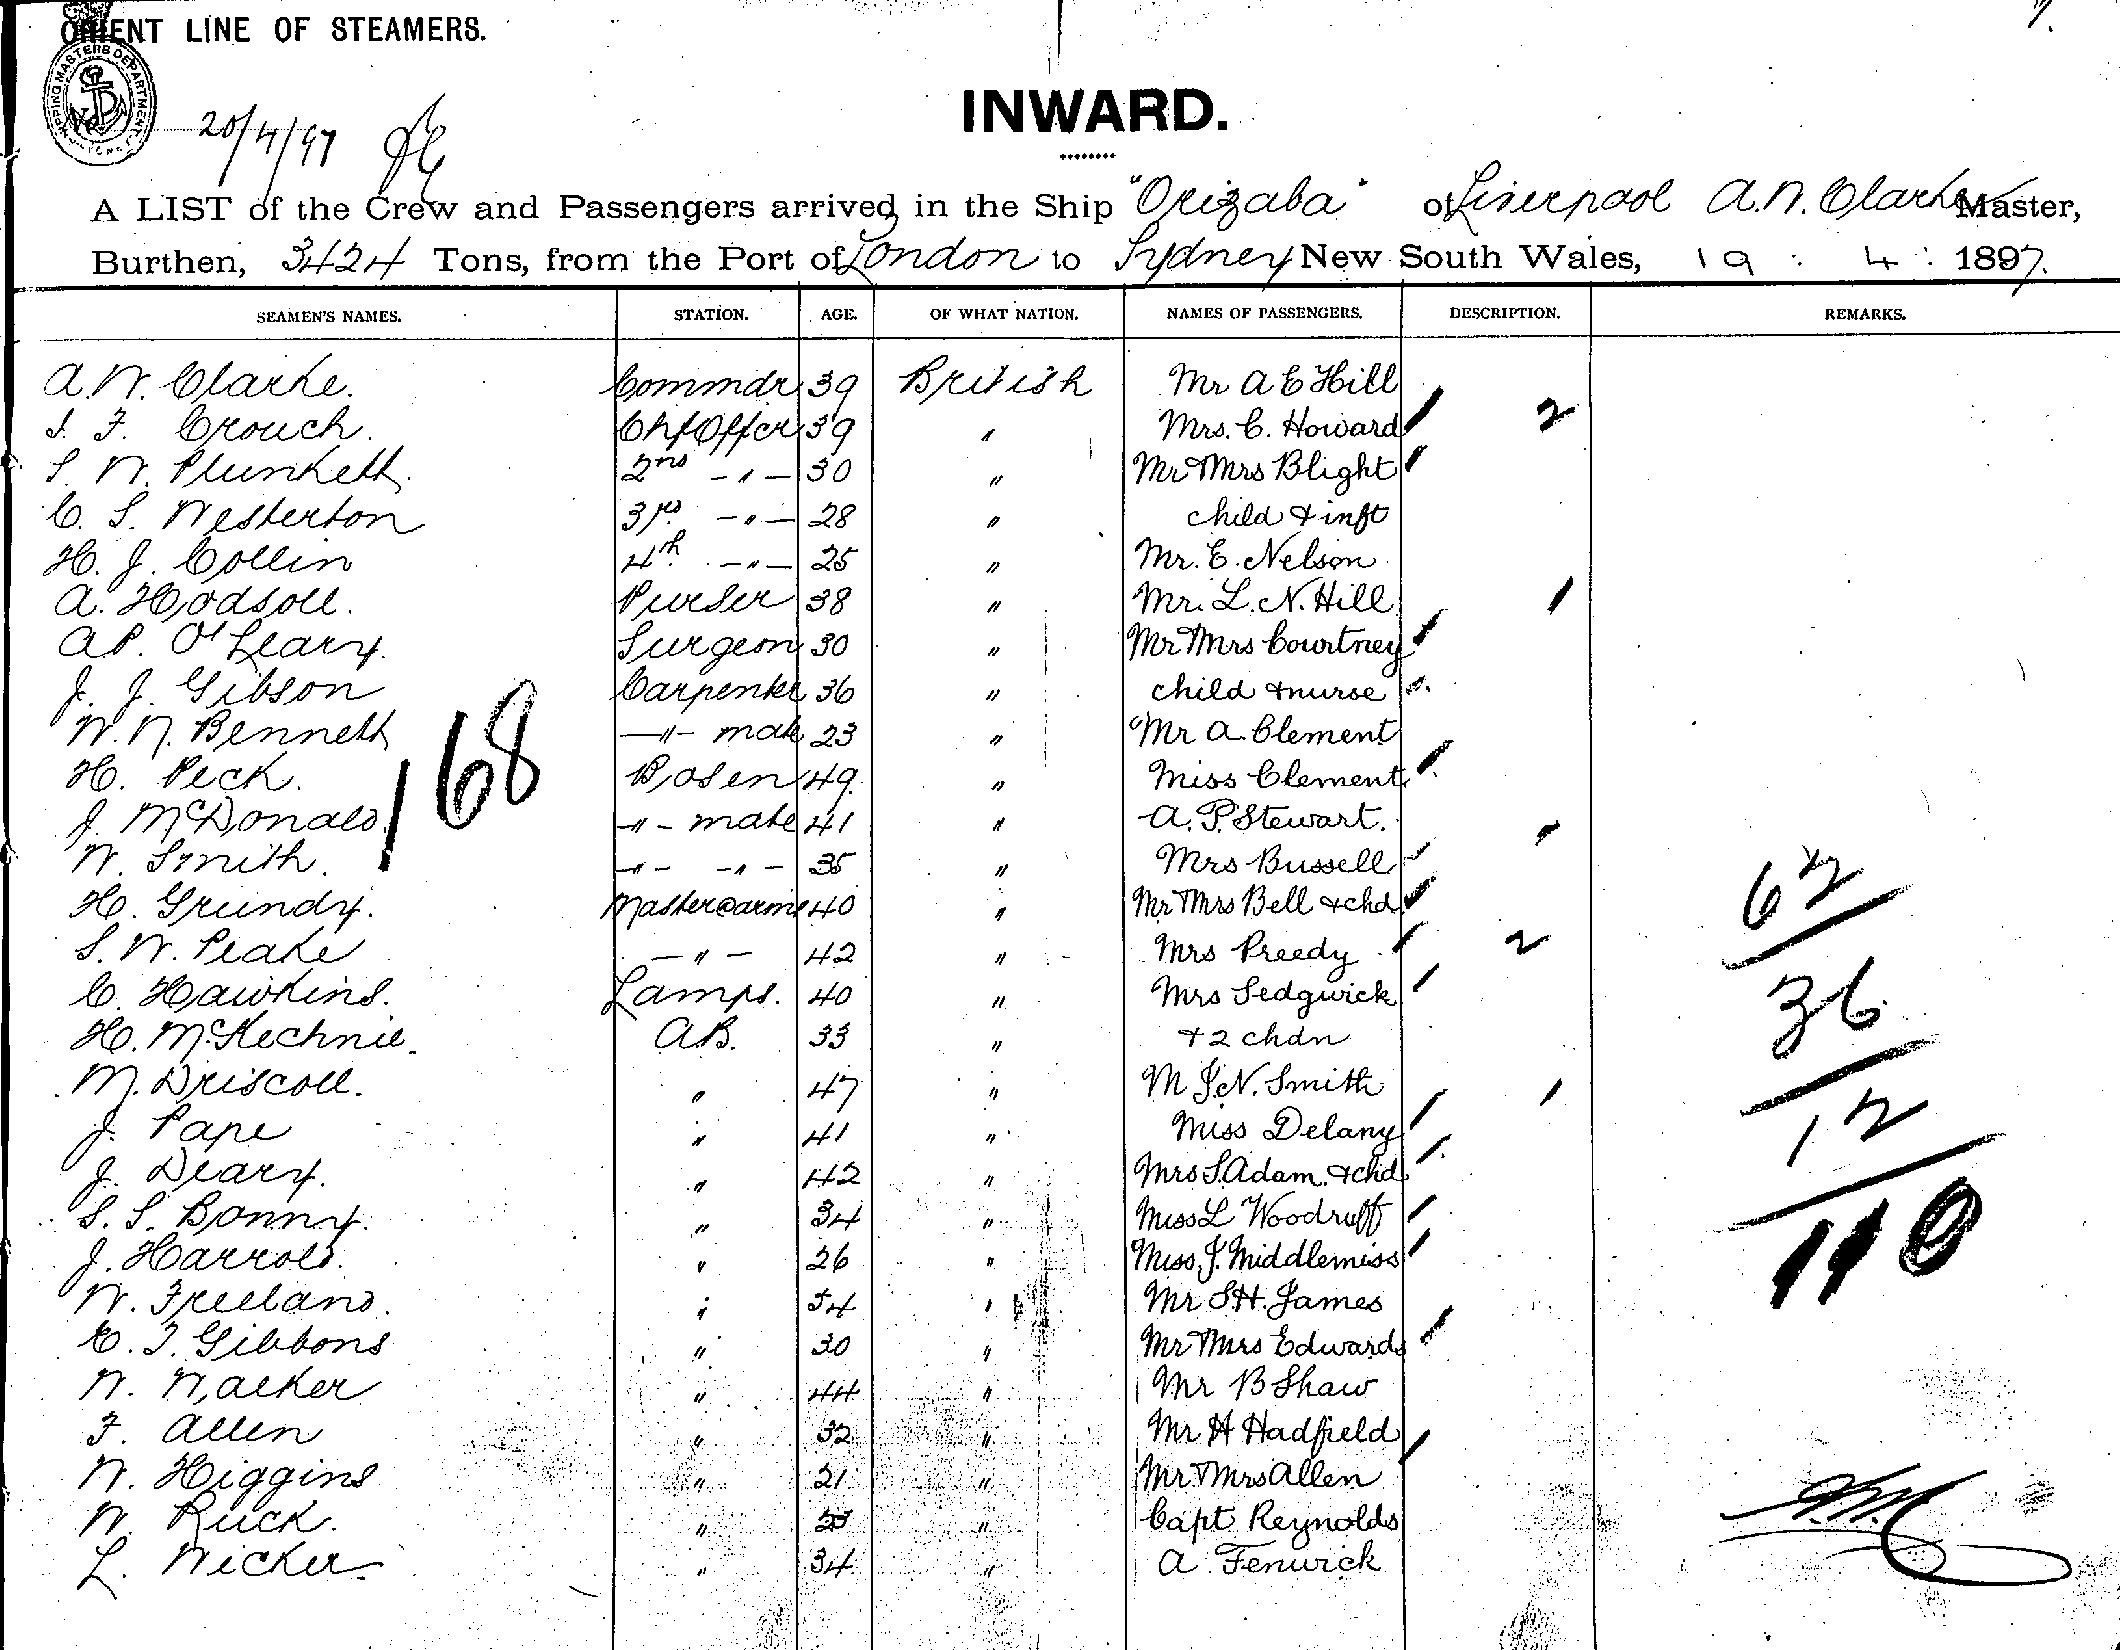 ORIENT LINE OF STEAMERS.
7.
SHIPPING MASTERS DEPARTMENT
20/4/97
INWARD.
A LIST of the Crew and Passengers arrived in the Ship "Orizaba" of Liverpool A.W. Clarke Master,
Burthen, 3424 Tons, from the Port of London to Sydney New South Wales, 19 : 4 : 1897.
SEAMEN'S NAMES. STATION. AGE. OF WHAT NATION. NAMES OF PASSENGERS. DESCRIPTION. REMARKS.
A.W. Clarke. Commdr 39 British Mr A E Hill
F. Crouch. Chf Offcr 39 " Mrs. C. Howard 2
S. W. Plunkett. 2nd -"- 30 " Mr & Mrs Blight
C. S. Westerton 3rd -"- 28 " child & inft
H. J. Collin 4th -"- 25 " Mr. E. Nelson
A. Hodsoll. Purser 38 " Mr. L. N. Hill 1
A.P. O'Leary. Surgeon 30 " Mr & Mrs Courtney
J. J. Gibson Carpenter 36 " child & nurse
W. N. Bennett -"- mate 23 " Mr A. Clement
H. Peck. Bosen 49 " Miss Clement
168
J. McDonald -"- mate 41 " A. P. Stewart.
W. Smith. -"- -"- 35 " Mrs Bussell
62
H. Grundy. Master @ arms 40 " Mr & Mrs Bell & chd
S. W. Peake -"- 42 " Mrs Preedy 2
C. Hawkins. Lamps. 40 " Mrs Sedgwick
36
H. McKechnie. A.B. 33 " & 2 chdn
M. Driscoll. " 47 " M J.N. Smith 1
J. Pape " 41 " Miss Delany
12
J. Deary. " 42 " Mrs S. Adam. & chd
S. S. Bonny. " 34 " Miss L Woodruff
110
J. Harrold. " 26 " Miss J. Middlemiss
W. Freeland. " 54 " Mr S.H. James
E. T. Gibbons " 30 " Mr & Mrs Edwards
W. Walker " 44 " Mr B Shaw
F. Allen " 32 " Mr H Hadfield
W. Higgins " 21 " Mr & Mrs Allen
W. Ruck. " " Capt Reynolds
L. Wicker. " 34 " A Fenwick